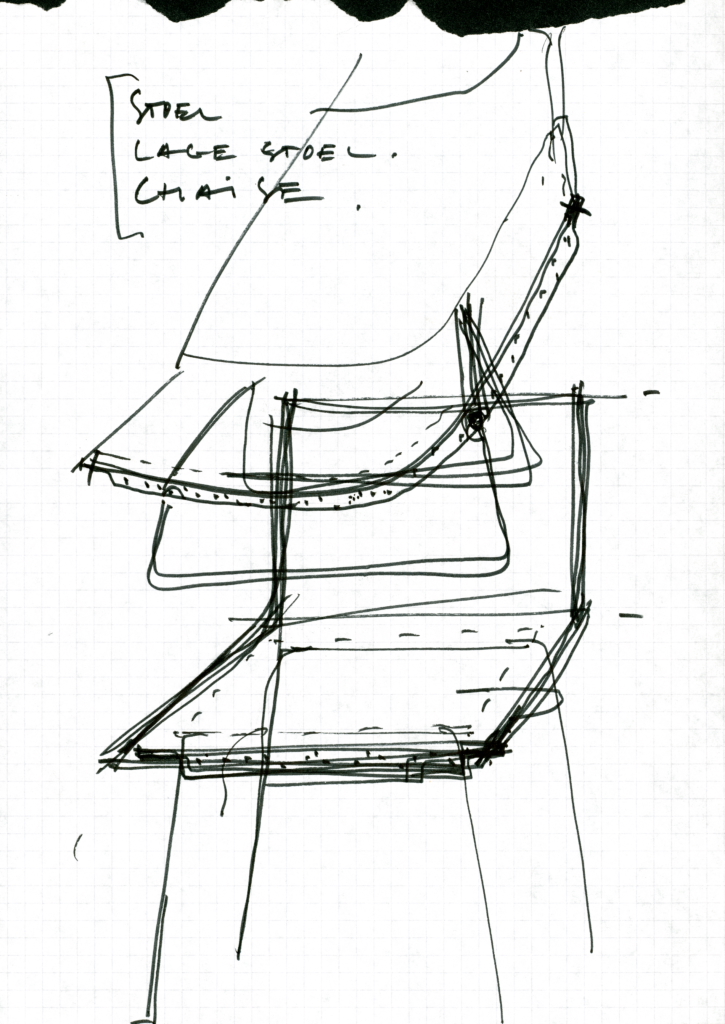 STOEL
LAGE STOEL.
CHAISE